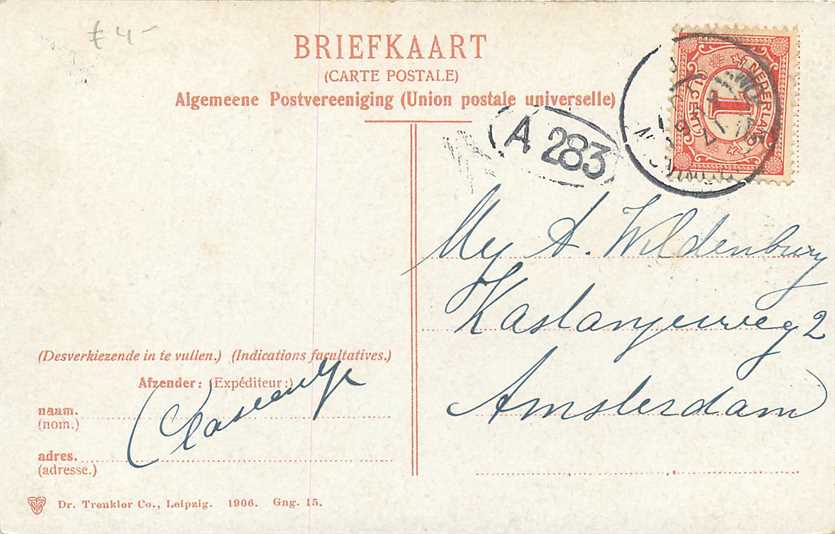 £ 4-
BRIEFKAART
(CARTE POSTALE)
Algemeene Postvereeniging (Union postale universelle)
NEDERLAND
1
A 283
A. Wildenburg
Kastanjeweg 2
Amsterdam
(Desverkiezende in te vullen.) (Indications facultatives.)
Afzender: (Expéditeur:)
naam.
(nom.)
adres.
(adresse.)
Dr. Trenkler Co., Leipzig. 1906. Gng. 15.